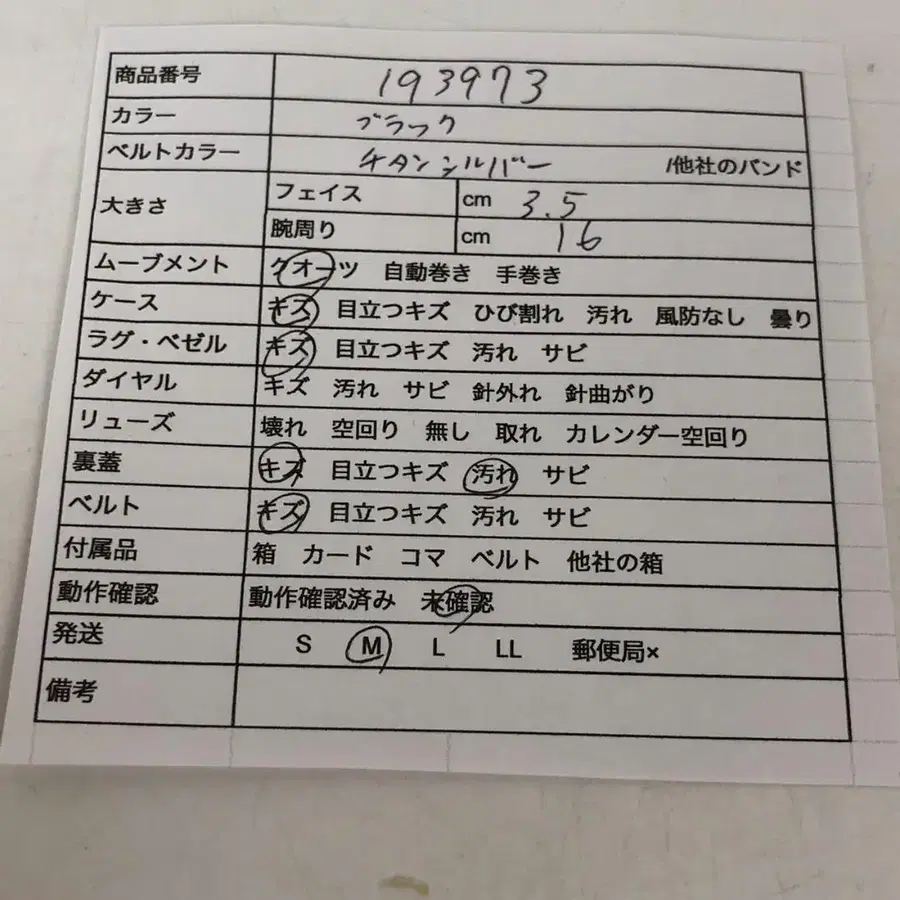 商品番号 193973
カラー ブラック
ベルトカラー チタンシルバー /他社のバンド
大きさ フェイス cm 3.5
腕周り cm 16
ムーブメント クオーツ 自動巻き 手巻き
ケース キズ 目立つキズ ひび割れ 汚れ 風防なし 曇り
ラグ・ベゼル キズ 目立つキズ 汚れ サビ
ダイヤル キズ 汚れ サビ 針外れ 針曲がり
リューズ 壊れ 空回り 無し 取れ カレンダー空回り
裏蓋 キズ 目立つキズ 汚れ サビ
ベルト キズ 目立つキズ 汚れ サビ
付属品 箱 カード コマ ベルト 他社の箱
動作確認 動作確認済み 未確認
発送 S M L LL 郵便局×
備考